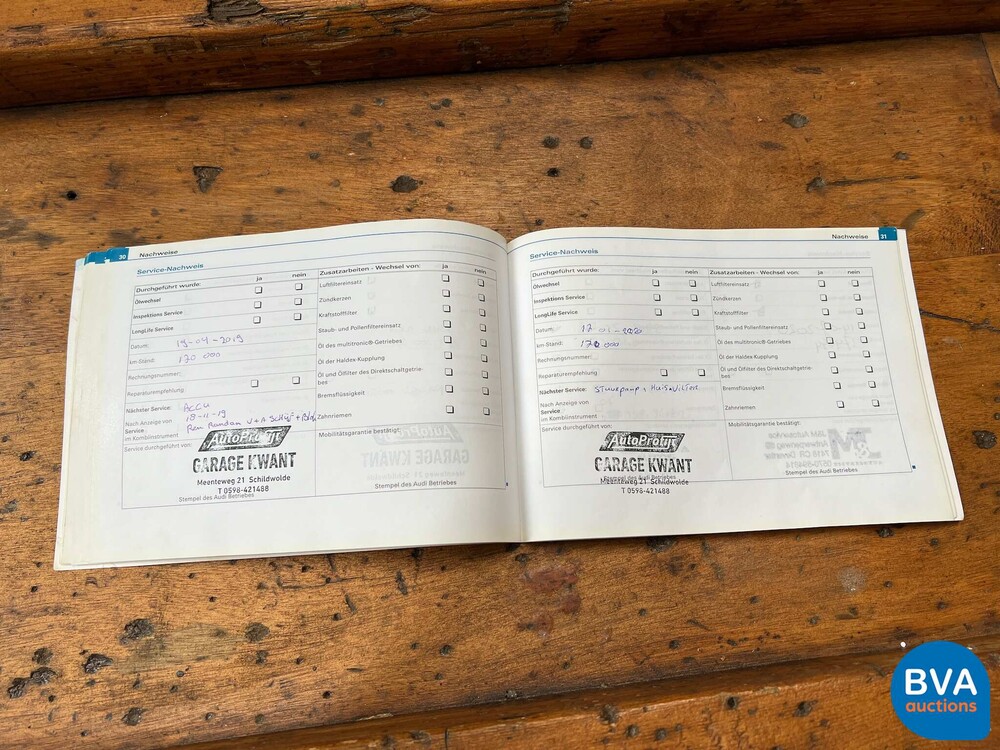 30 Nachweise
Service-Nachweis
Durchgeführt wurde: ja nein
Ölwechsel
Inspektions Service
LongLife Service
Datum: 19-04-2019
km-Stand: 170 000
Rechnungsnummer:
Reparaturempfehlung
Nächster Service: ACCU
Nach Anzeige von 18-11-19
Service
im Kombiinstrument Rem Randen V+A
Service durchgeführt von:
AutoProfijt
GARAGE KWANT
Meenteweg 21 Schildwolde
T 0598-421488
Stempel des Audi Betriebes
Zusatzarbeiten - Wechsel von: ja nein
Luftfiltereinsatz
Zündkerzen
Kraftstofffilter
Staub- und Pollenfiltereinsatz
Öl des multitronic®-Getriebes
Öl der Haldex-Kupplung
Öl und Ölfilter des Direktschaltgetrie-
bes
Bremsflüssigkeit
Zahnriemen
Mobilitätsgarantie bestätigt:
Stempel des Audi Betriebes
Nachweise 31
Service-Nachweis
Durchgeführt wurde: ja nein
Ölwechsel
Inspektions Service
LongLife Service
Datum: 17-01-2020
km-Stand: 170 000
Rechnungsnummer:
Reparaturempfehlung
Nächster Service: Stuurpomp
Nach Anzeige von
Service
im Kombiinstrument
Service durchgeführt von:
AutoProfijt
GARAGE KWANT
Stempel des Audi Betriebes
Meenteweg 21 Schildwolde
T 0598-421488
Zusatzarbeiten - Wechsel von: ja nein
Luftfiltereinsatz
Zündkerzen
Kraftstofffilter
Staub- und Pollenfiltereinsatz
Öl des multitronic®-Getriebes
Öl der Haldex-Kupplung
Öl und Ölfilter des Direktschaltgetrie-
bes
Bremsflüssigkeit
Zahnriemen
Mobilitätsgarantie bestätigt:
Stempel des Audi Betriebes
BVA
auctions